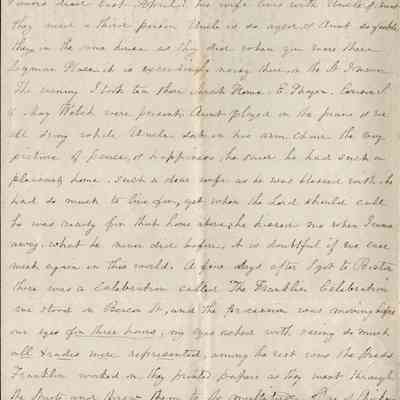 died last April. his wife lives with Uncle &
they need a third person Uncle is so aged & Aunt so feeble
they in the same house as they did when you were there
Lyman Place it is exceedingly noisy there, in the
The evening I took tea there Sarah Howe E. Thayer.
& May Welch were present, Aunt played on the piano & we
all sang while Uncle sat in his arm chair the very
picture of peace, & happiness, he said he had such a
pleasant home, such a dear wife as he was blessed with, he
had so much to live for, yet when the Lord should call
he was ready for that home above, he kissed me when I came
away, what he never did before, it is doubtful if we ever
meet again in this world. A few days after I got to Boston
there was a Celebration called The Franklin Celebration
we stood on Beacon St, and the procession was moving before
our eyes for three hours, my eyes ached with seeing so much
all trades were represented, among the rest was the Press
Franklin worked on they printed papers as they went through
the streets and threw them to the multitude,